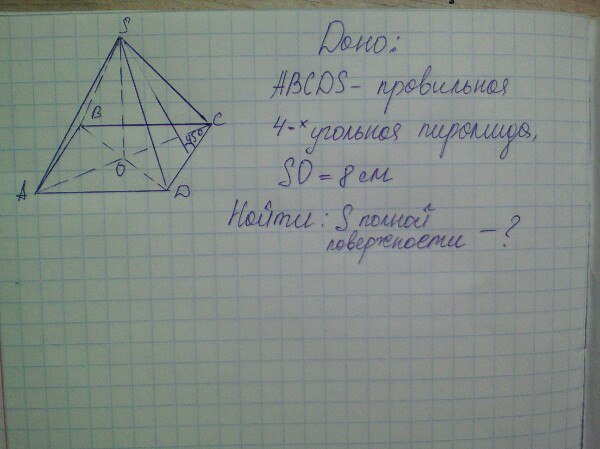 S
B
C
45°
O
A
D
Дано:
ABCDS – правильная
4-х угольная пирамида,
SO = 8 см
Найти: S полной
поверхности – ?